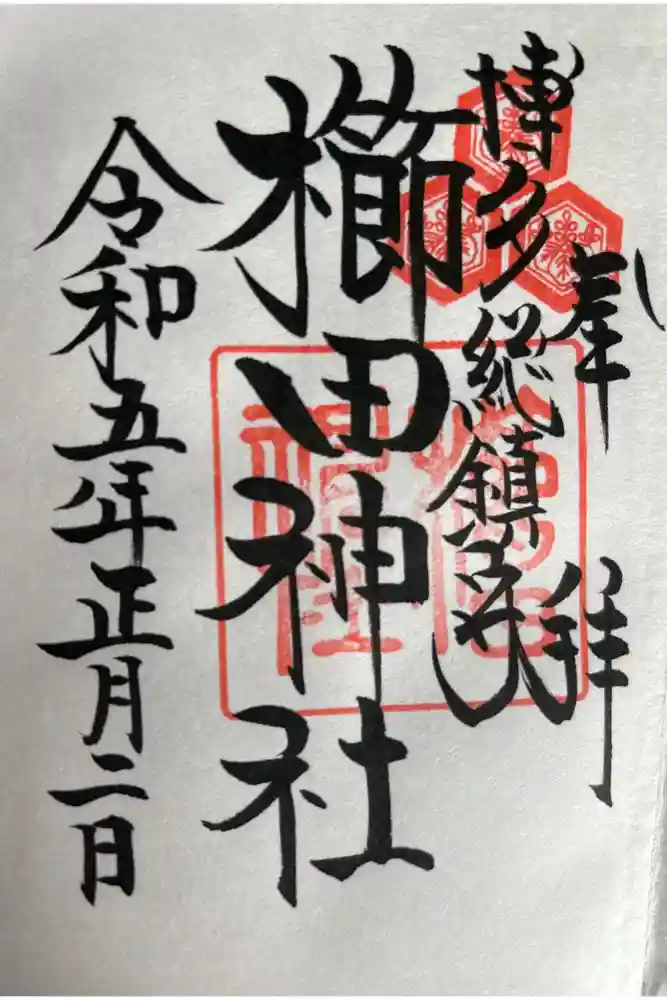 奉拝
博多総鎮守
櫛田神社
令和五年正月二日
櫛田神社